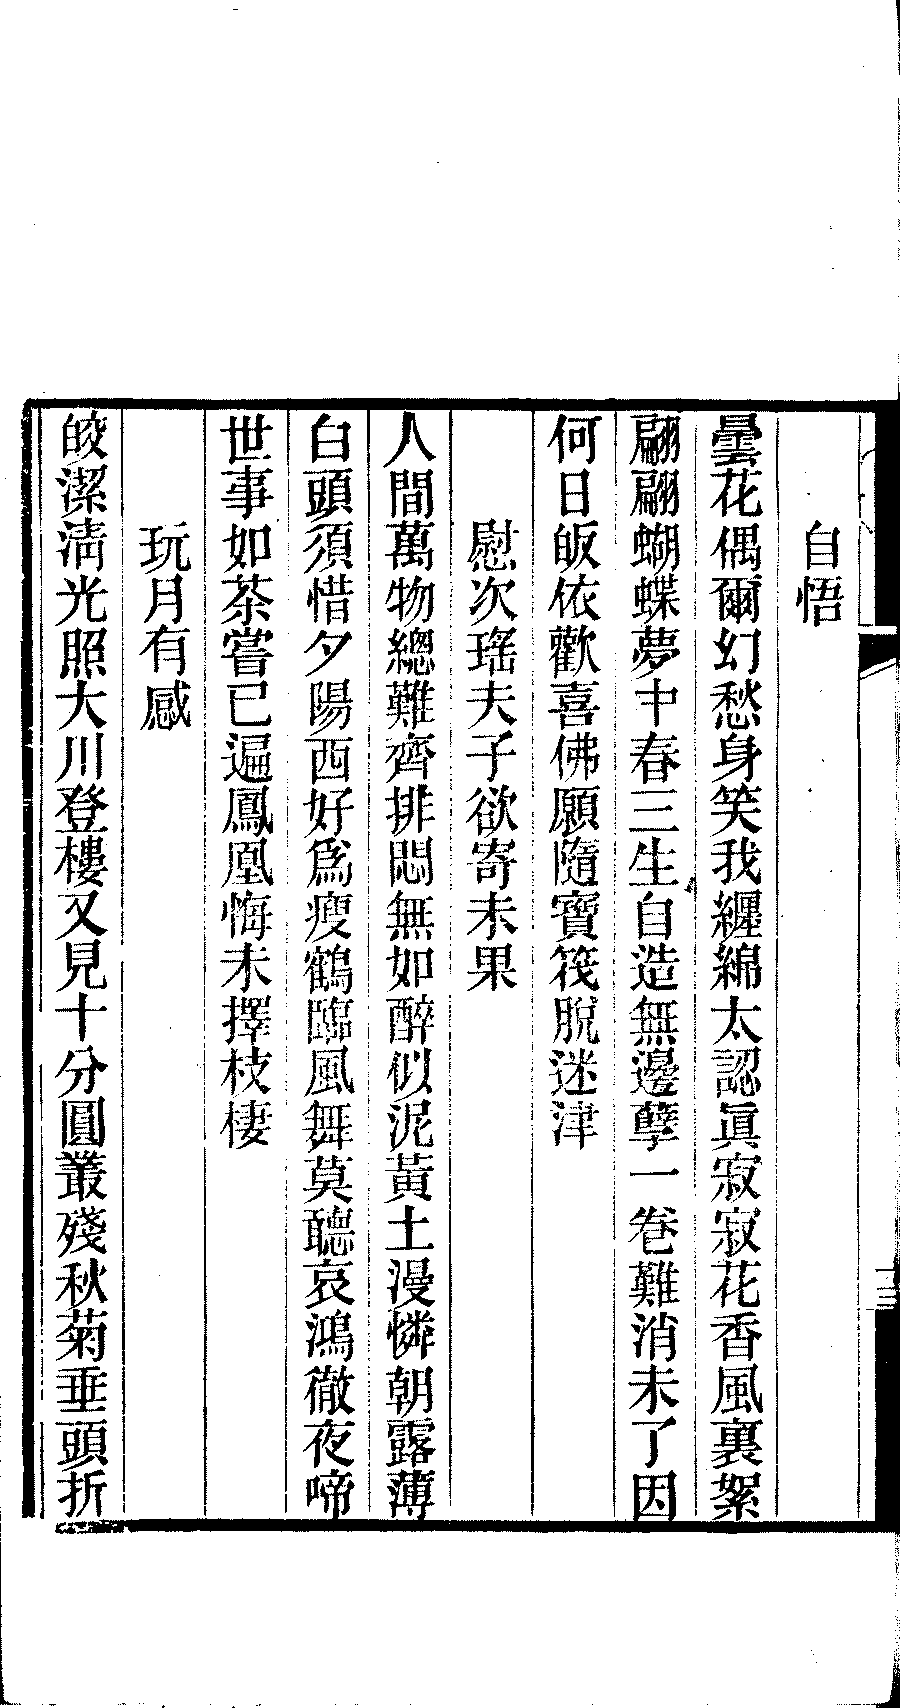 自悟
曇花偶爾幻愁身笑我纏綿太認眞寂寂花香風裏絮
翩翩蝴蝶夢中春三生自造無邊孽一卷難消未了因
何日皈依歡喜佛願隨寶筏脫迷津
慰次瑤夫子欲寄未果
人間萬物總難齊排悶無如醉似泥黃土漫憐朝露薄
白頭須惜夕陽西好爲瘦鶴臨風舞莫聽哀鴻徹夜啼
世事如茶嘗已遍鳳凰悔未擇枝棲
玩月有感
皎潔淸光照大川登樓又見十分圓叢殘秋菊垂頭折